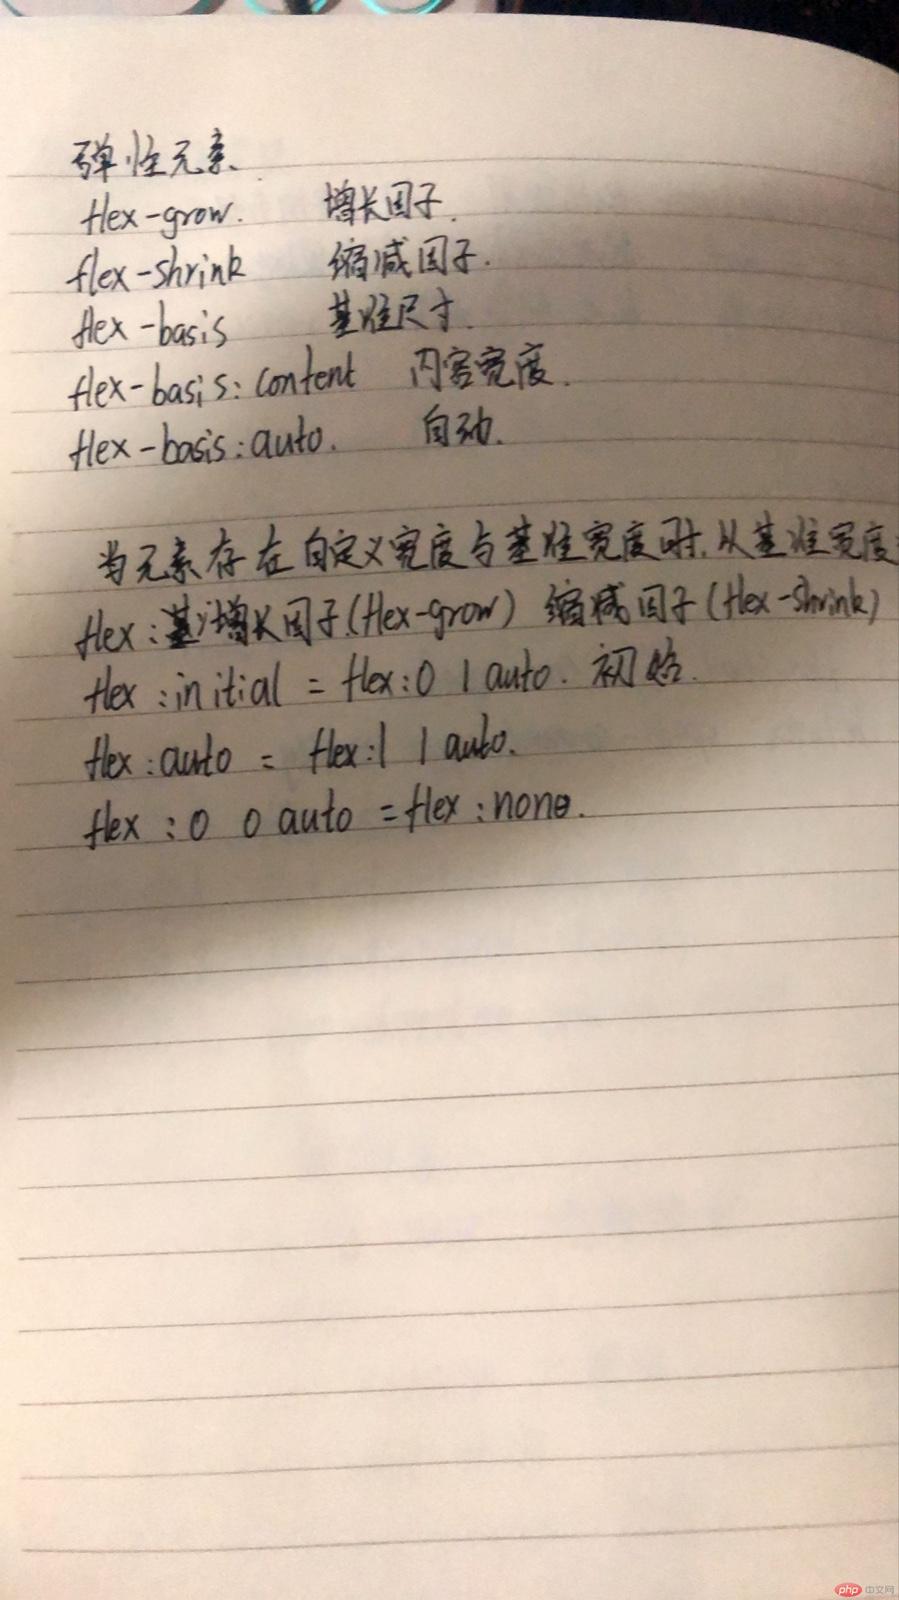 弹性元素.
flex-grow. 增长因子.
flex-shrink 缩减因子.
flex-basis 基准尺寸.
flex-basis:content 内容宽度.
flex-basis:auto. 自动.
当元素存在自定义宽度与基准宽度时.从基准宽度
flex:增长因子(flex-grow) 缩减因子(flex-shrink)
flex:initial = flex:0 1 auto. 初始.
flex:auto = flex:1 1 auto.
flex:0 0 auto = flex:none.
php 中文网